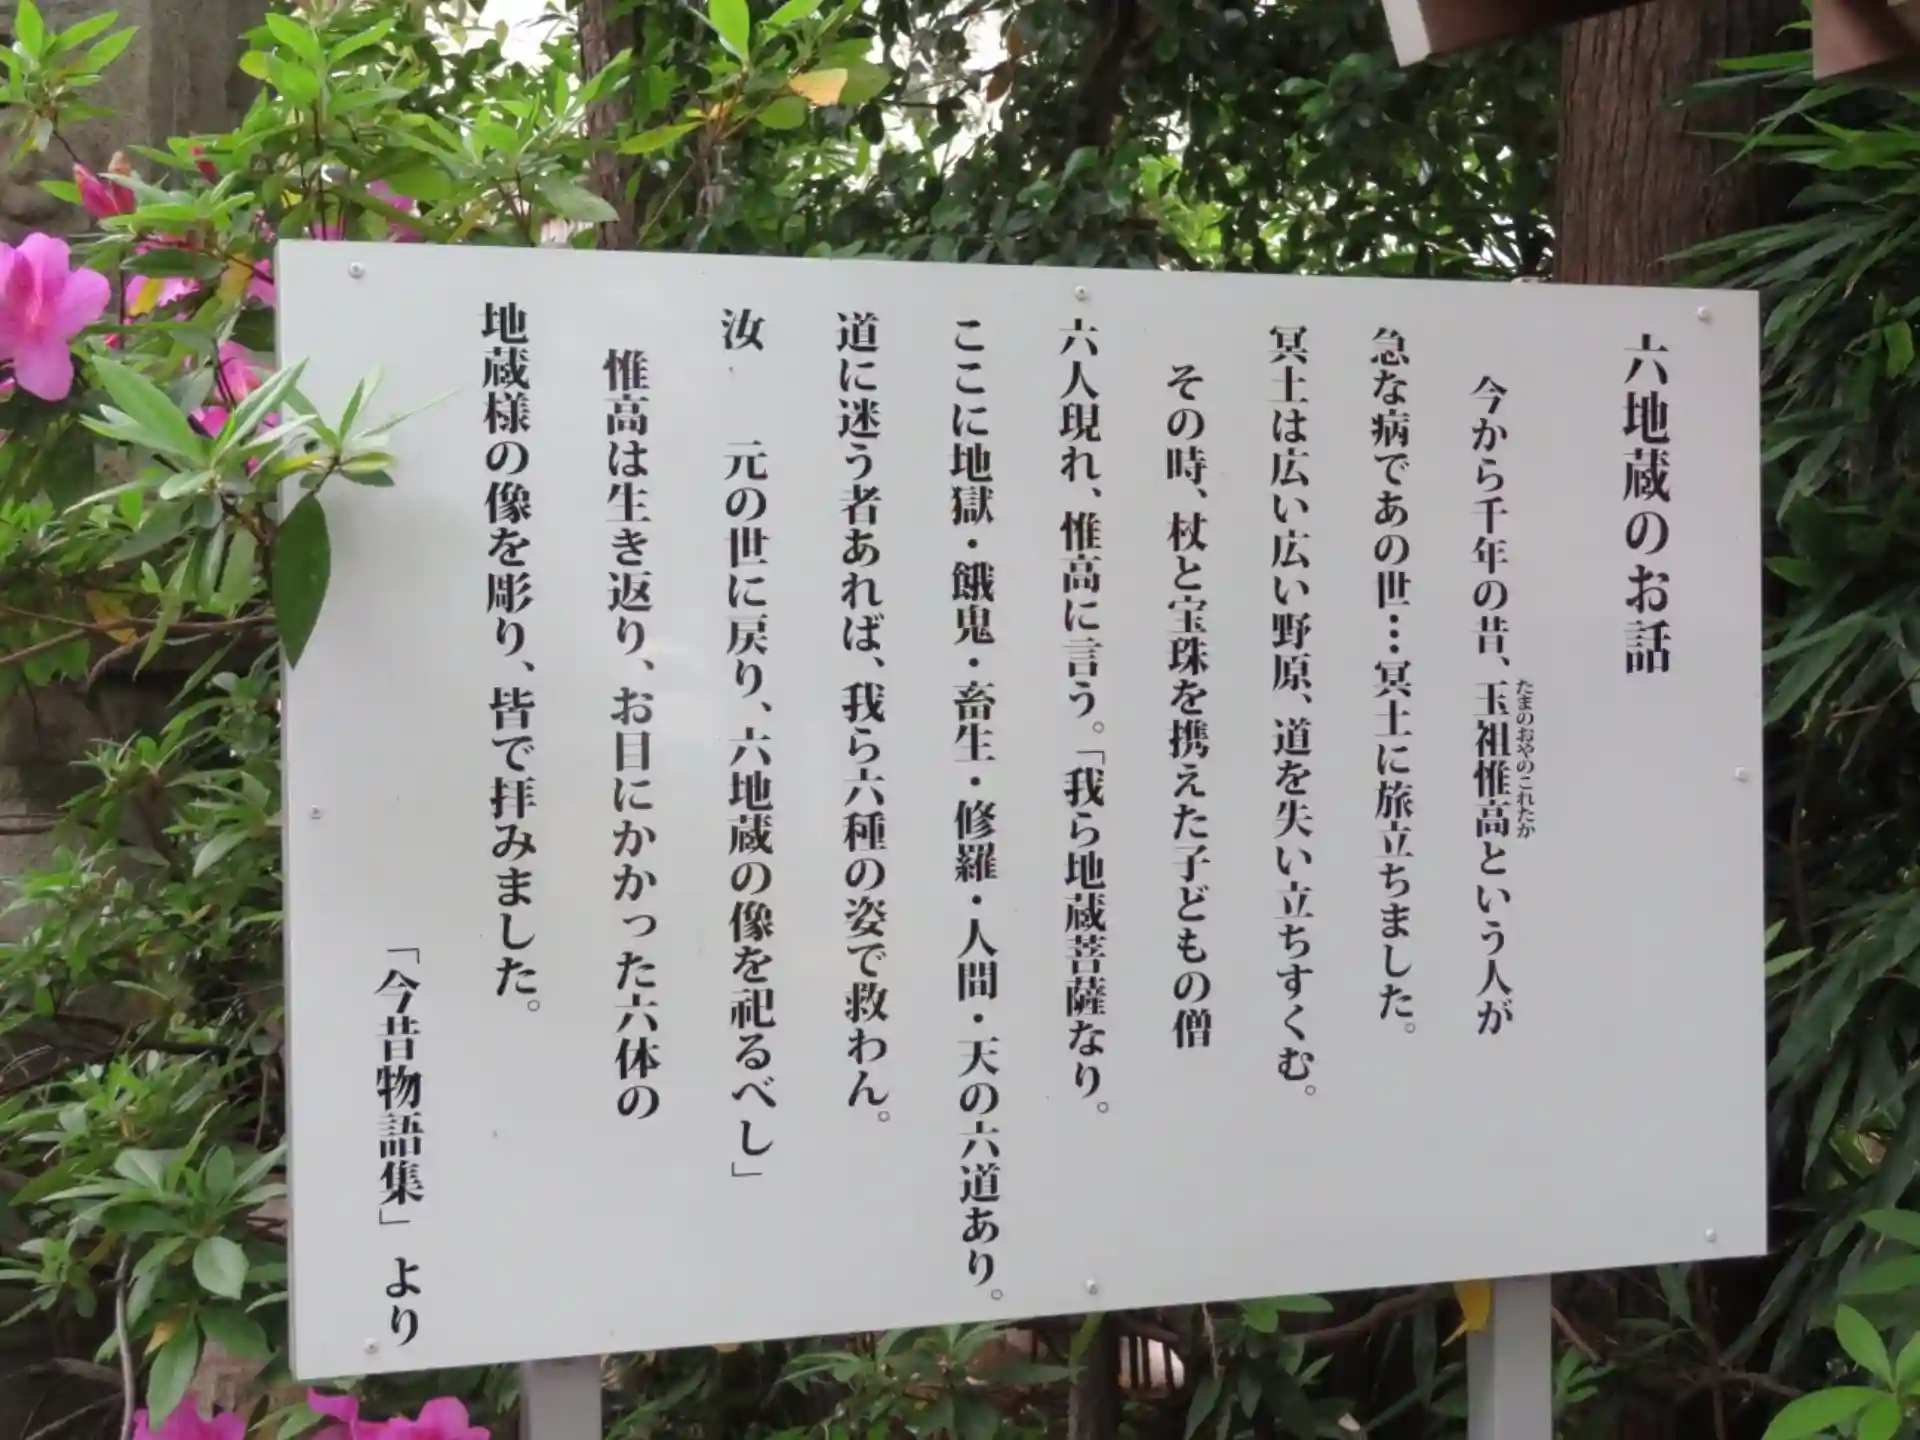 六地蔵のお話
今から千年の昔、玉祖惟高という人が
たまのおやのこれたか
急な病であの世…冥土に旅立ちました。
冥土は広い広い野原、道を失い立ちすくむ。
その時、杖と宝珠を携えた子どもの僧
六人現れ、惟高に言う。「我ら地蔵菩薩なり。
ここに地獄・餓鬼・畜生・修羅・人間・天の六道あり。
道に迷う者あれば、我ら六種の姿で救わん。
汝　元の世に戻り、六地蔵の像を祀るべし」
惟高は生き返り、お目にかかった六体の
地蔵様の像を彫り、皆で拝みました。
「今昔物語集」より